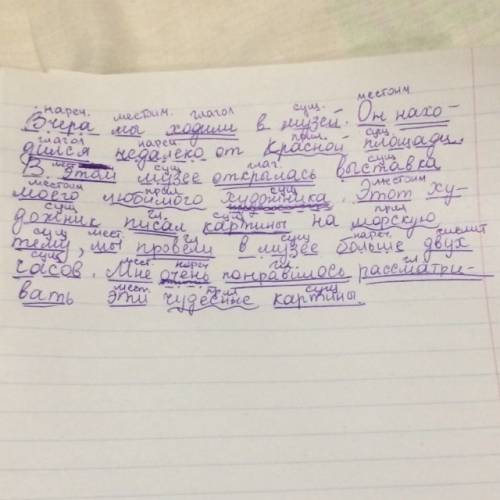 нареч. местоим. глагол сущ. местоим
Вчера мы ходили в музей. Он нахо-
глагол нареч прил. сущ.
дился недалеко от Красной площади.
мест сущ глаг. сущ
В этом музее открылась выставка
местоим прил сущ местоим
моего любимого художника. Этот ху-
сущ гл. сущ прил
дожник писал картины на морскую
сущ мест гл сущ нареч. числит
тему, мы провели в музее больше двух
сущ мест нареч гл гл
часов. Мне очень понравилось рассматри-
мест. прил сущ
вать эти чудесные картины.